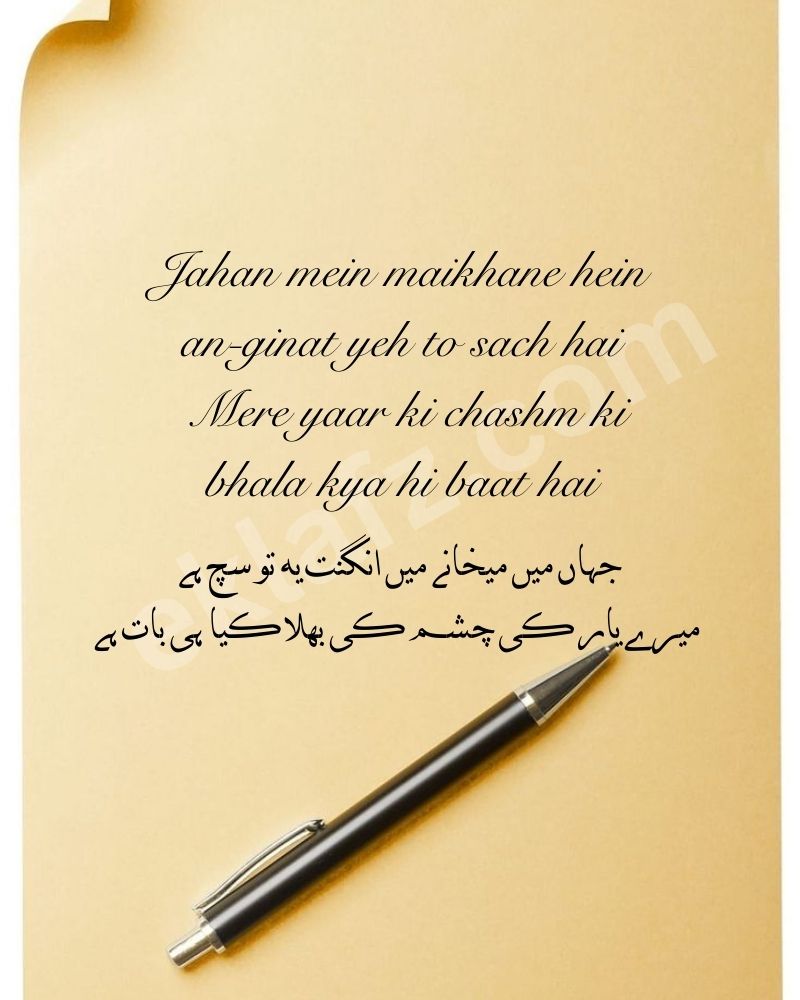 Jahan mein maikhane hein
an-ginat yeh to sach hai
Mere yaar ki chashm ki
bhala kya hi baat hai
جہاں میں میخانے میں انگنت یہ تو سچ ہے
میرے یار کی چشم کی بھلا کیا ہی بات ہے
eklafz.com